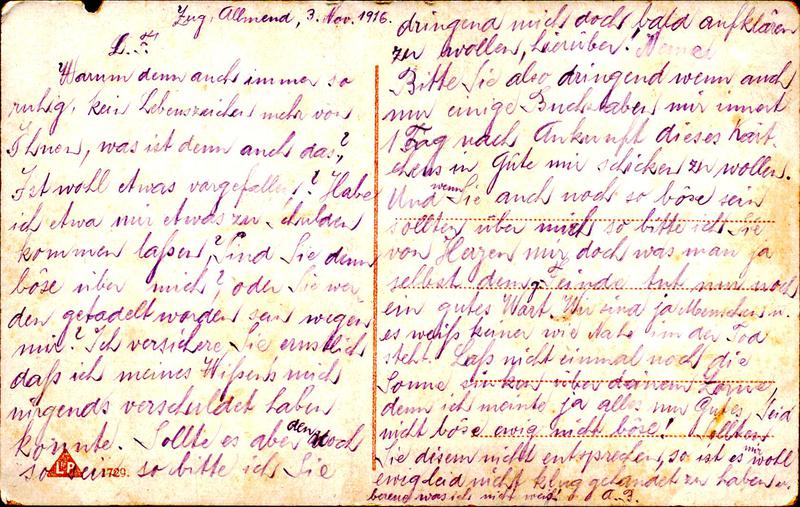 Zug, Allmend, 3. Nov. 1916.
L. F.
Warum denn auch immer so
ruhig, kein Lebenszeichen mehr von
Ihnen, was ist denn auch das?
Ist wohl etwas vorgefallen? Habe
ich etwa mir etwas zu Schulden
kommen laßen? Sind Sie denn
böse über mich? oder Sie wer
den getadelt worden sein wegen
mir? Ich versichere Sie ernstlich
daß ich meines Wißens mich
nirgends verschuldet haben
könnte. Sollte es aber dennoch
so sein so bitte ich Sie
L&P 1729.
dringend mich doch bald aufklären
zu wollen, hierüber!
Bitte Sie also dringend wenn auch
nur einige Buchstaben mir innert
1 Tag nach Ankunft dieses Kärt
chens in Güte mir schicken zu wollen.
Und wenn Sie auch noch so böse sein
sollten über mich so bitte ich Sie
von Herzen mir doch was man ja
selbst dem Feinde tut nur noch
ein gutes Wort. Wir sind ja Menschen u.
es weiß keiner wie Nahe im der Tod
steht. Laß nicht einmal noch die
Sonne sinken über deinem Zorne
denn ich meinte ja alles nur Gutes, Seid
nicht böse ewig nicht böse! Sollten
Sie disem nicht entsprechen, so ist es mir wohl
ewig leid nicht klug gehandelt zu haben
was ich nicht weiß! A. B.